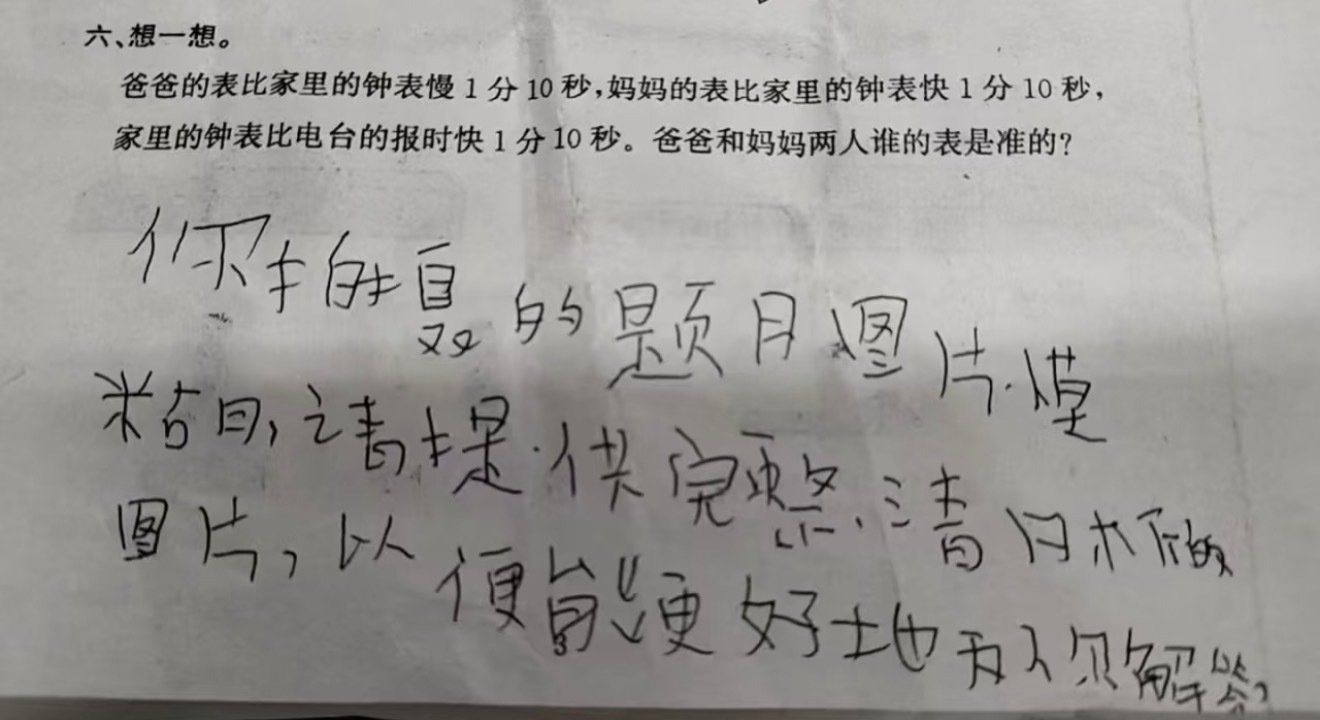 六、想一想。
爸爸的表比家里的钟表慢1分10秒,妈妈的表比家里的钟表快1分10秒,
家里的钟表比电台的报时快1分10秒。爸爸和妈妈两人谁的表是准的?
你拍摄的题目图片模
糊,请提供完整、清晰的
图片,以便能更好地为你解答